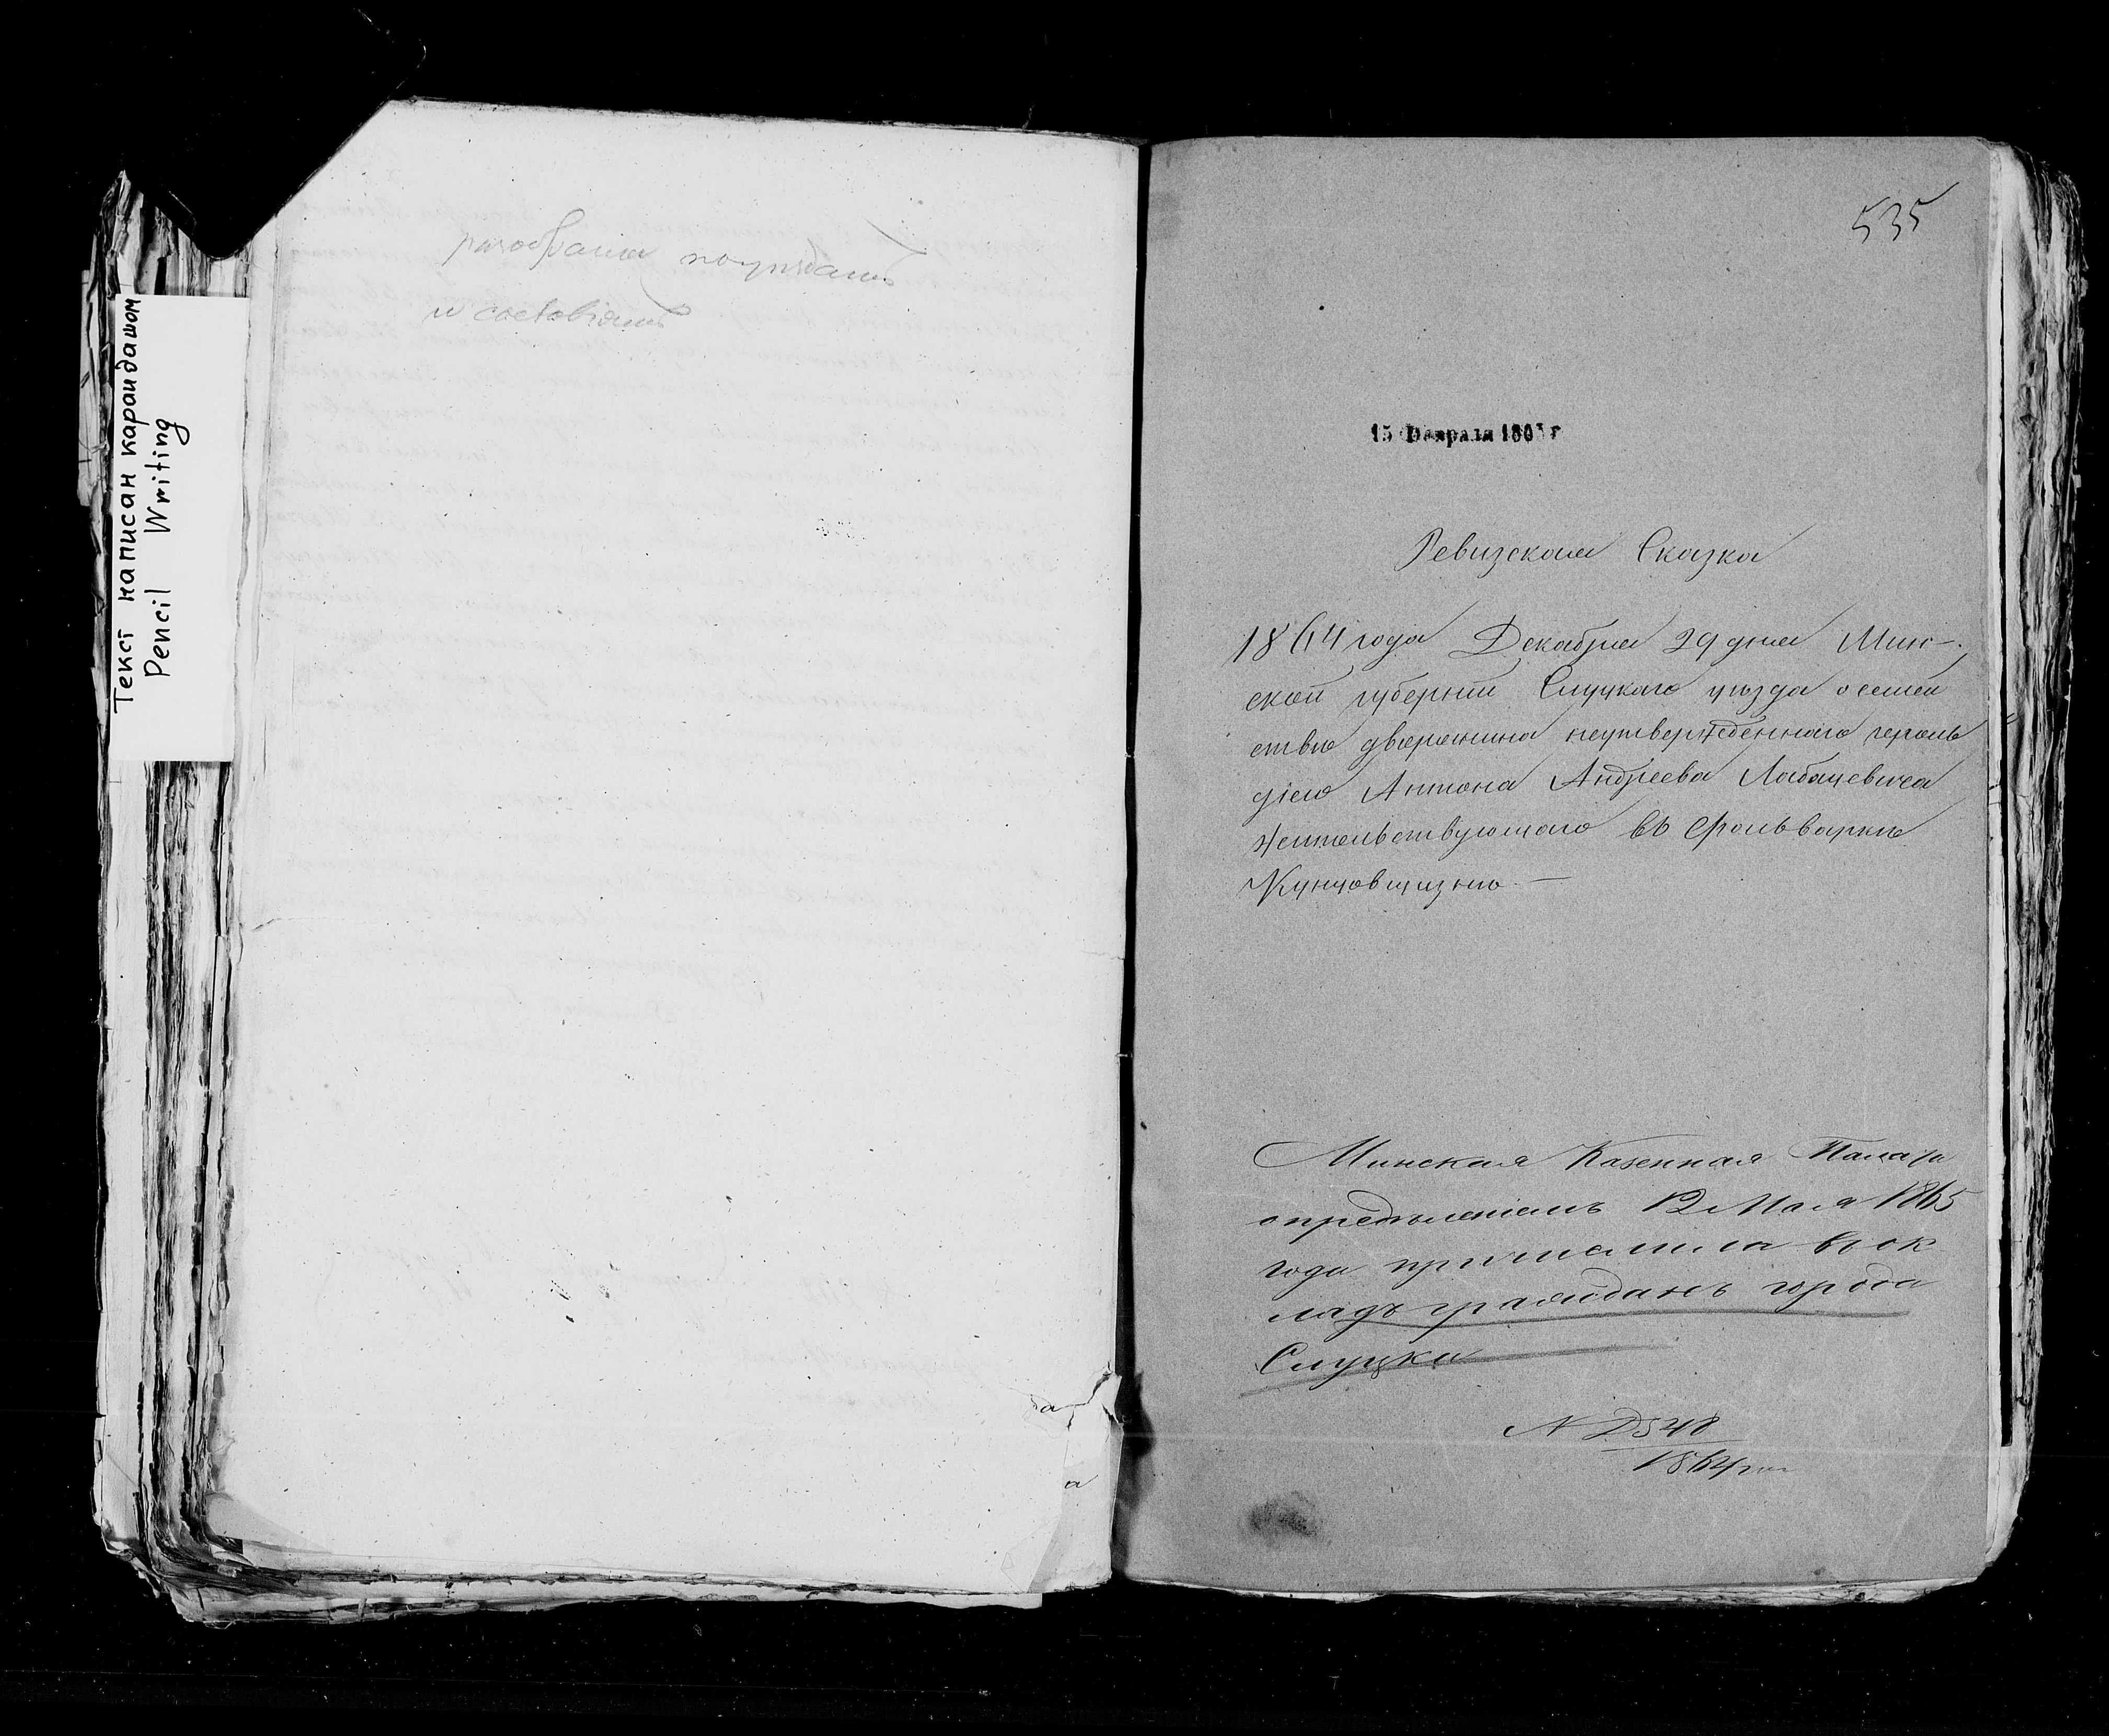 Текст написан карандашом
Pencil Writing
разобрана
и
535
15 Февраля 1865 г
Ревизская Сказка
1864 года Декабря 29 дня Мин-
ской губернии Слуцкаго уѣзда о семей
ствѣ дворянина неутвержденнаго героль
діею Антона Андреева Лабацевича
жительствующаго въ Фольварке
Кунцовщизнѣ. —
Минская Казенная Палата
опредѣленіемъ 12 Мая 1865
года причислила въ ок
ладъ гражданъ города
Слуцка
N 2548
1864 года
да
а